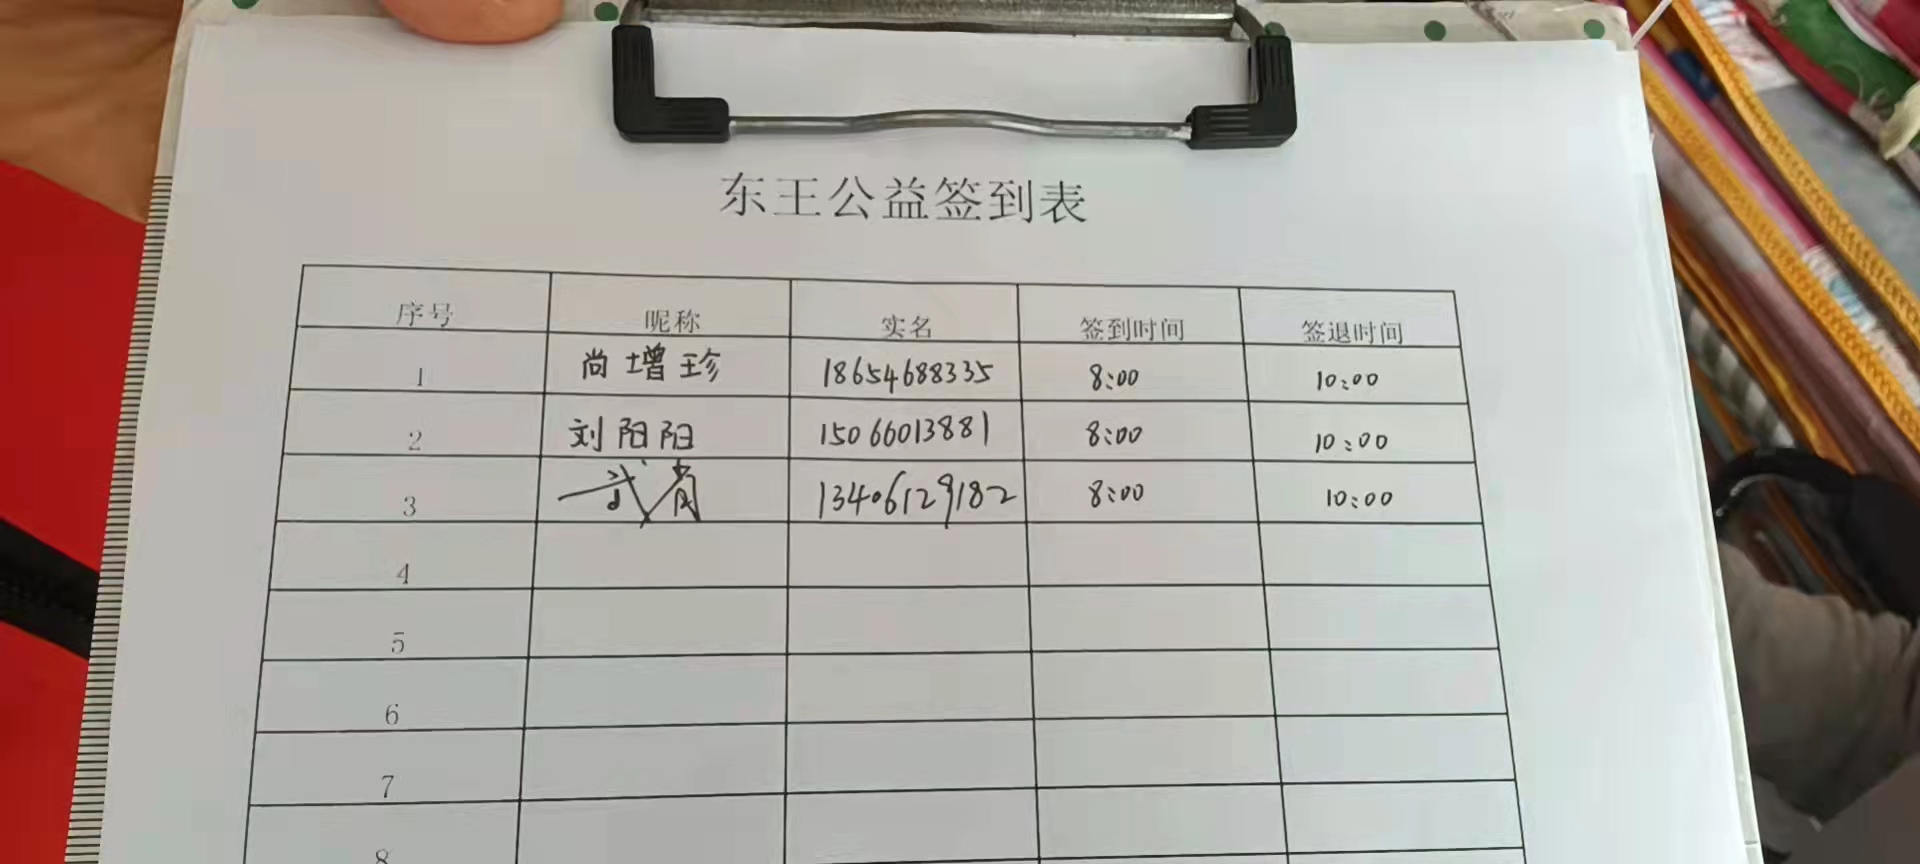 东王公益签到表
序号 昵称 实名 签到时间 签退时间
1 尚增珍 18654688335 8:00 10:00
2 刘阳阳 15066013881 8:00 10:00
3 武 13406129182 8:00 10:00
4
5
6
7
8